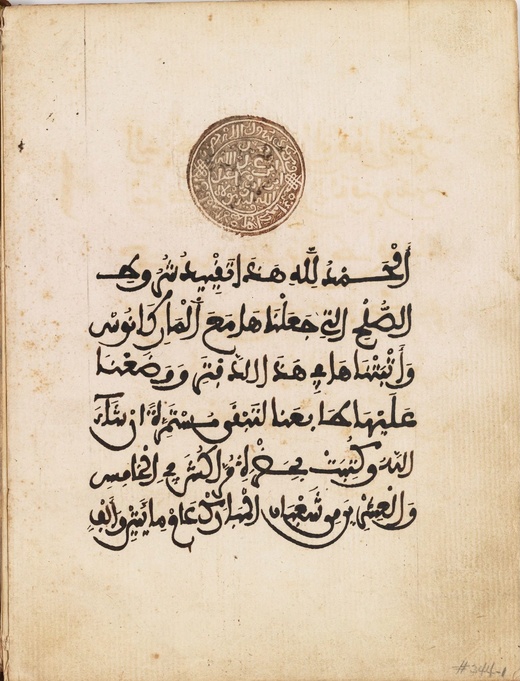 الحمد لله هذا تقييد شروط
الصلح التي جعلناها مع المار كانوس
وأثبتناها في هذا الدفتر ووضعنا
عليها طابعنا لتبقى مستمرة إن شاء
الله وكتبت بحضرة مراكش في الخامس
والعشرين من شعبان المبارك عام مايتين وألف
#344-1